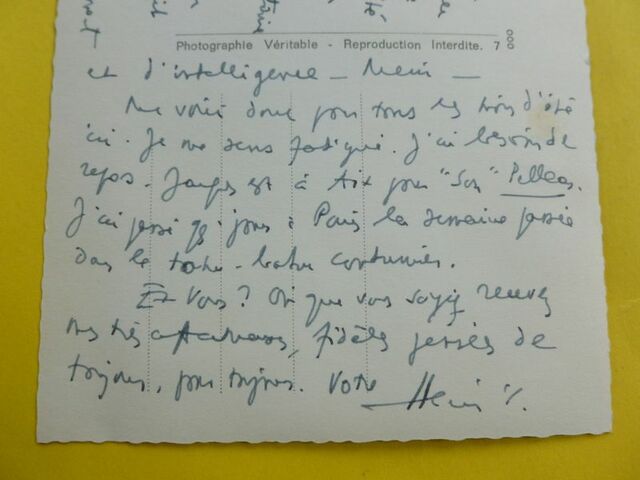 Photographie Véritable - Reproduction Interdite. 7
et d'intelligence - Merci -
Me voici donc pour tous les mois d'été
ici. Je me sens fatigué. J'ai besoin de
repos. Jacques est à Aix pour "Son" Pelleas.
J'ai passé qq jours à Paris la semaine passée
dans le tohu-bohu coutumier.
Et Vous? Où que vous soyez recevez
mes très affectueuses, fidèles pensées de
toujours, pour toujours. Votre Henri